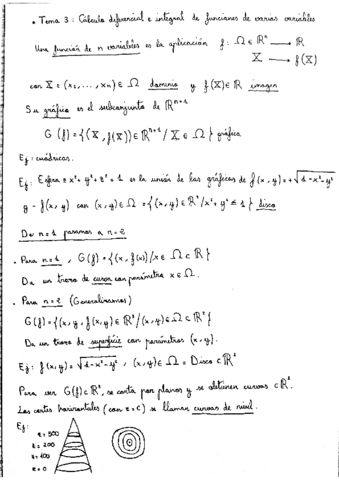 • Tema 3: Cálculo diferencial e integral de funciones de varias variables
Una función de n variables es la aplicación f: Ω ∈ ℝⁿ → ℝ
X → f(X)
con X = (x₁, ..., xₙ) ∈ Ω dominio y f(X) ∈ ℝ imagen
Su gráfica es el subconjunto de ℝⁿ⁺¹
G(f) = {(X, f(X)) ∈ ℝⁿ⁺¹ / X ∈ Ω} gráfica
Ej: cuádricas.
Ej: Esfera x² + y² + z² = 1 es la unión de las gráficas de f(x, y) = +√1-x²-y²
y - f(x, y) con (x, y) ∈ Ω = {(x, y) ∈ ℝ² / x² + y² ≤ 1} disco
De n=1 pasamos a n=2
• Para n=1, G(f) = {(x, f(x)) / x ∈ Ω ⊂ ℝ}
Da un trozo de curva con parámetro x ∈ Ω.
• Para n=2 (Generalizamos)
G(f) = {(x, y, f(x, y)) ∈ ℝ³ / (x, y) ∈ Ω ⊂ ℝ²}
Da un trozo de superficie con parámetros (x, y).
Ej: f(x, y) = √1-x²-y², (x, y) ∈ Ω = Disco ⊂ ℝ²
Para ver G(f) ⊂ ℝ³, se corta por planos y se obtienen curvas ⊂ ℝ².
Los cortes horizontales (con z = C) se llaman curvas de nivel.
Ej:
z = 500
z = 200
z = 100
z = 0